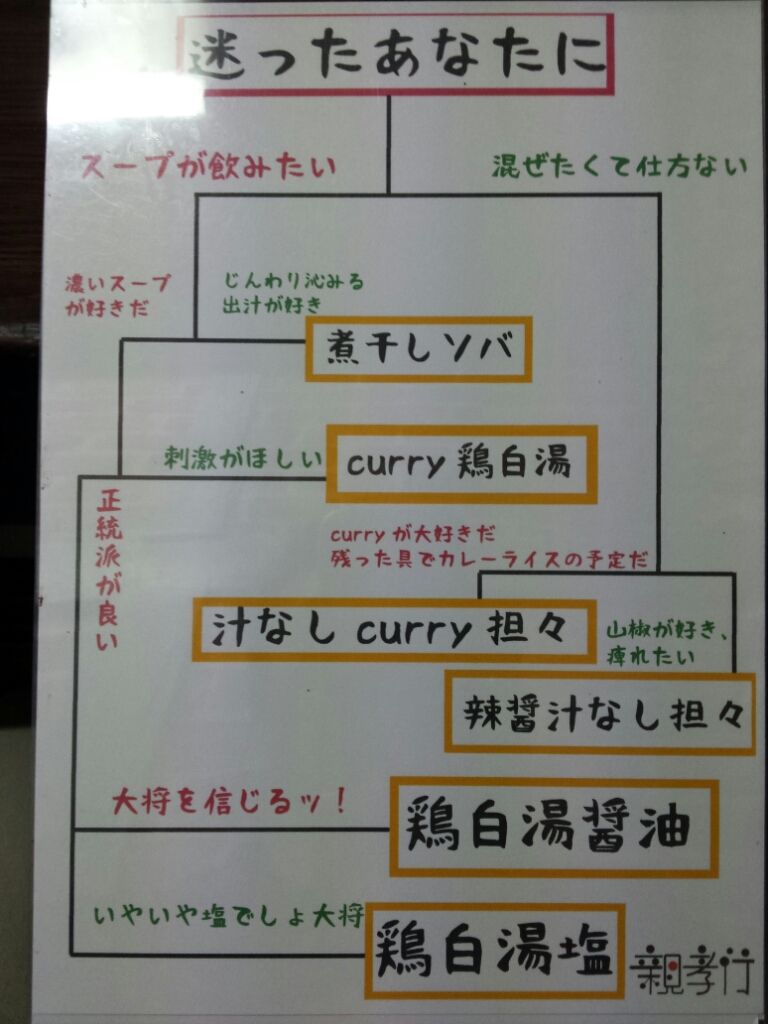 迷ったあなたに
スープが飲みたい
混ぜたくて仕方ない
濃いスープ
が好きだ
じんわり沁みる
出汁が好き
煮干しソバ
刺激がほしい
curry 鶏白湯
正統派が良い
curry が大好きだ
残った具でカレーライスの予定だ
汁なし curry 担々
山椒が好き、
痺れたい
辣醤汁なし担々
大将を信じるッ!
鶏白湯醤油
いやいや塩でしょ大将
鶏白湯塩
親孝行